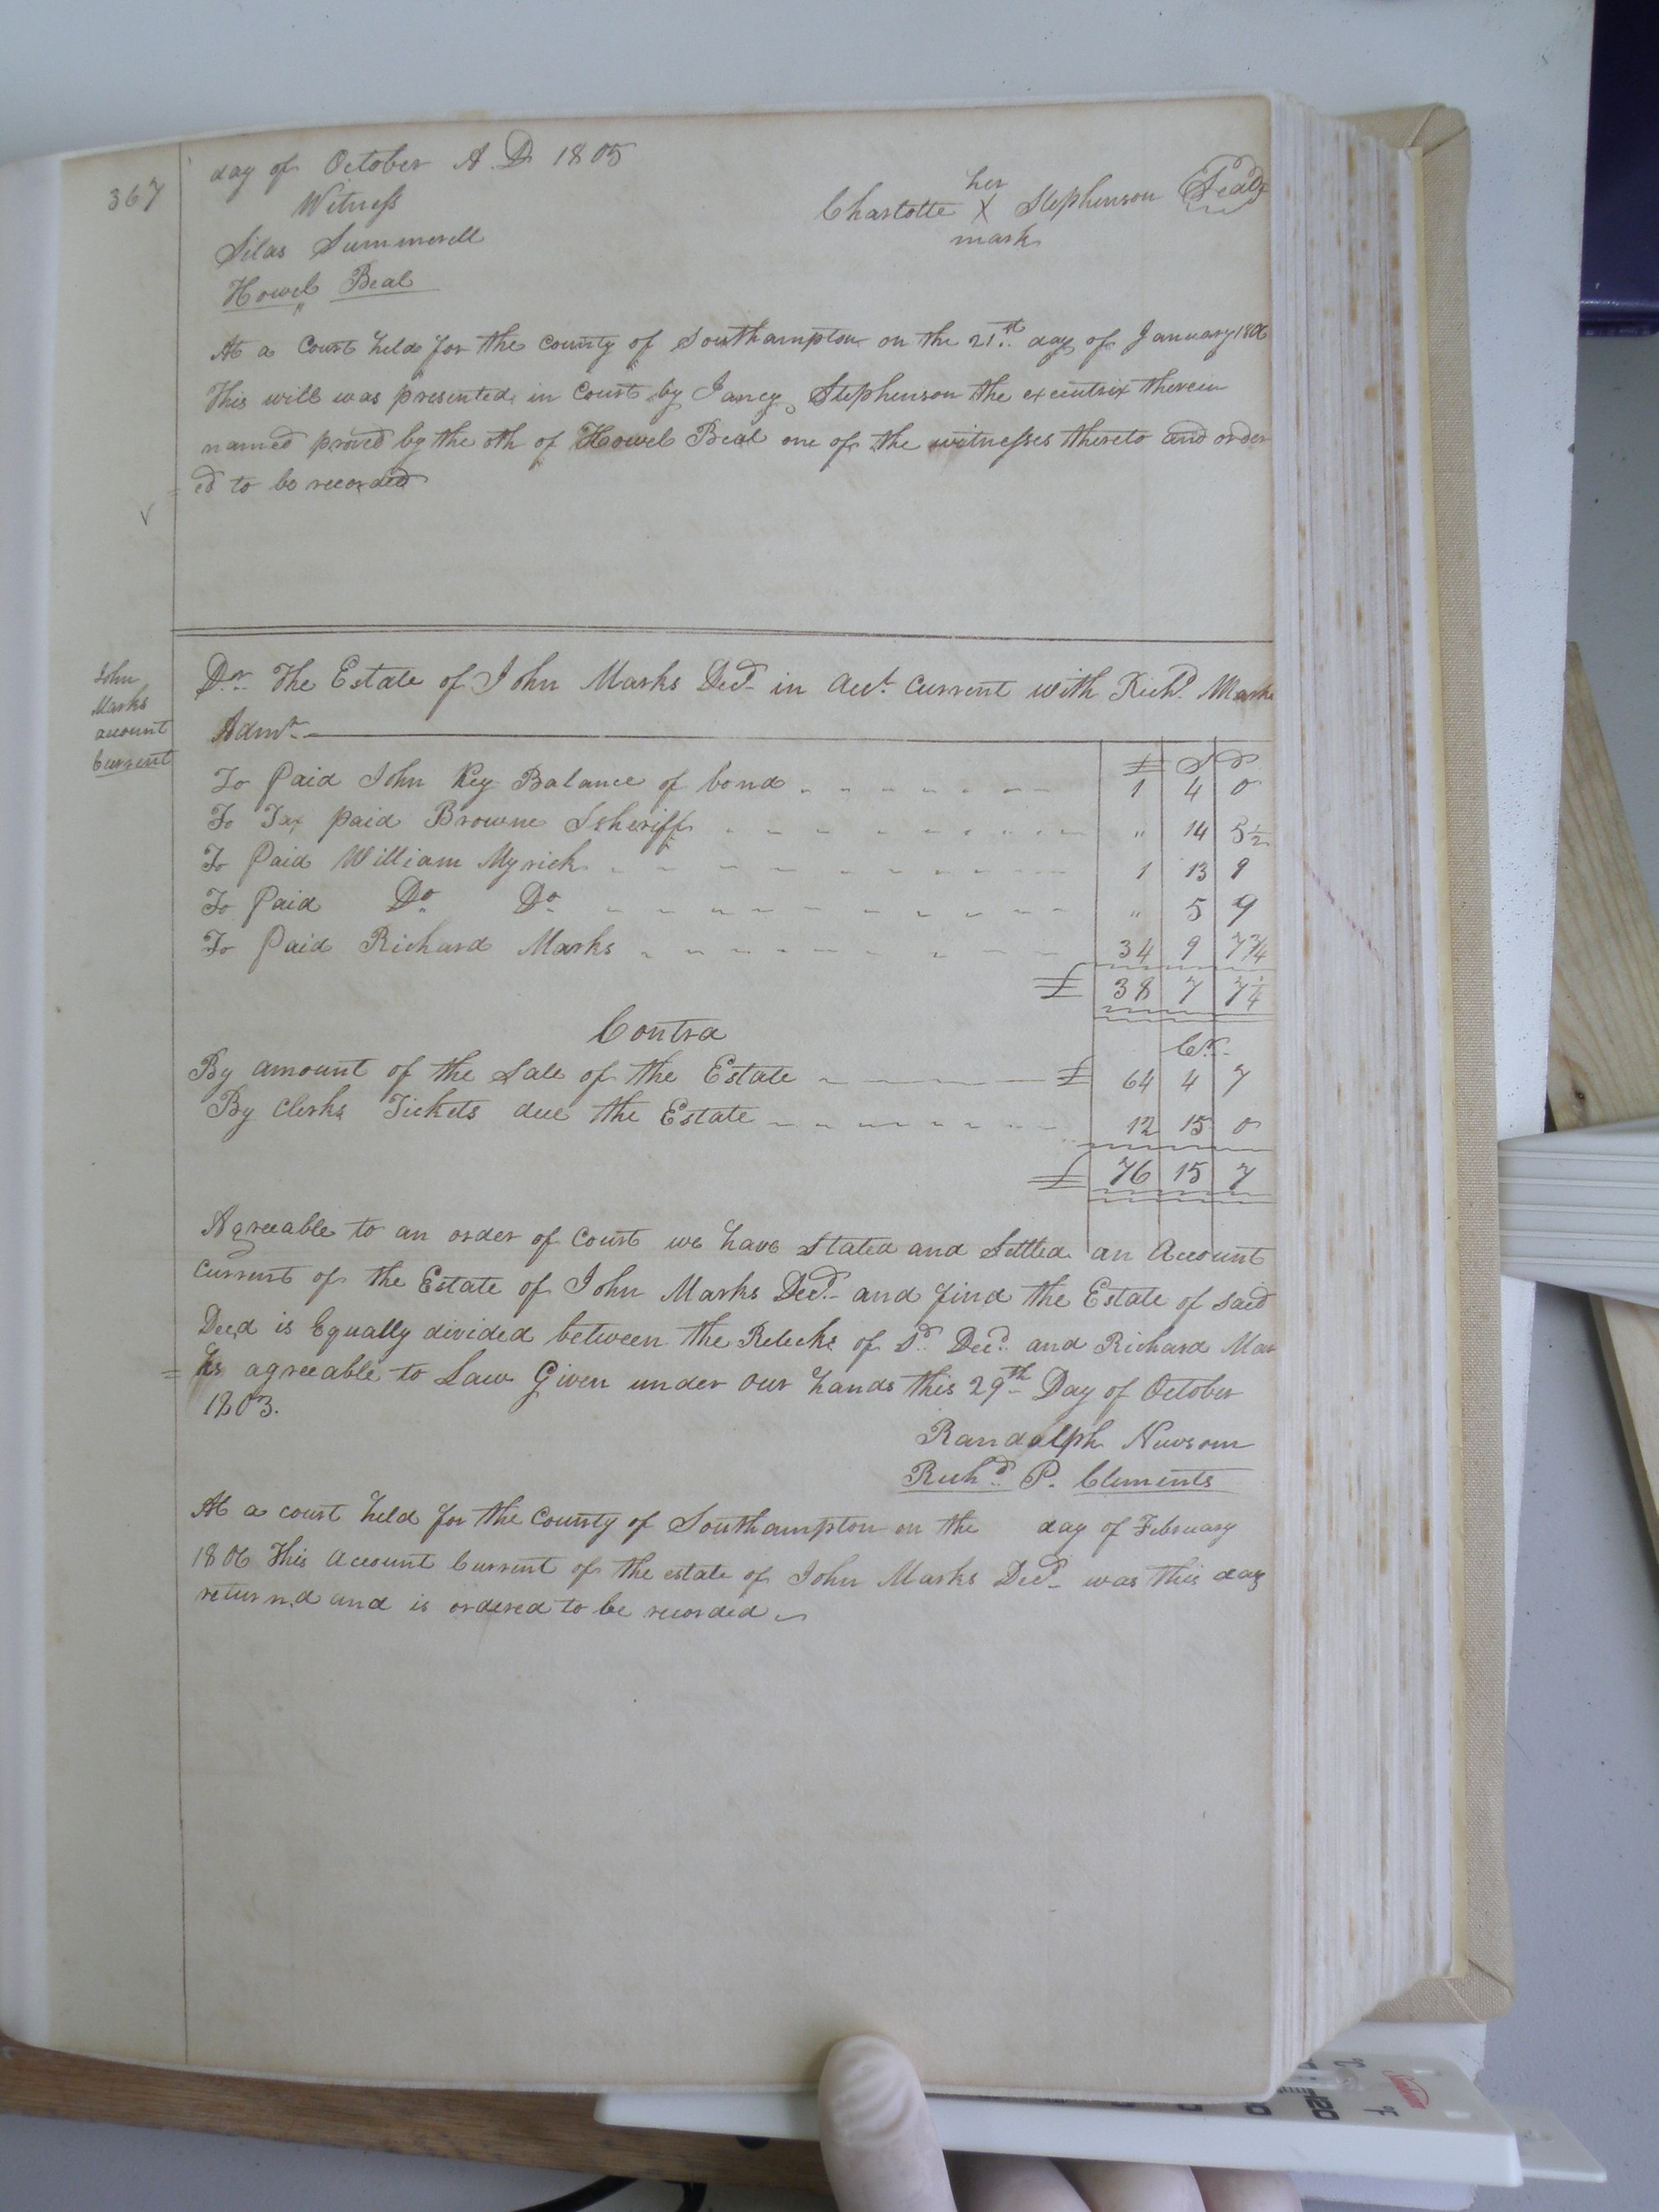 367
day of October A. D 1805
Witness
Charlotte her X mark Stephenson Seal
Silas Summerell
Howel Beal
At a Court held for the county of Southampton on the 21st day of January 1806
This will was presented in Court by Jancy Stephenson the executrix therein
named proved by the oth of Howel Beal one of the witnesses thereto and order
ed to be recorded
John
Marks
account
Current
Dr. The Estate of John Marks Decd. in acct. Current with Richd. Marks
Admr.
£ S D
To Paid John Key Balance of bond 1 4 0
To Tax paid Browne Sheriff " 14 5½
To Paid William Myrick 1 13 9
To Paid Do. Do. " 5 9
To Paid Richard Marks 34 9 7¾
£ 38 7 7¼
Contra Cr.
By amount of the Sale of the Estate £ 64 4 7
By Clerks Tickets due the Estate 12 15 0
£ 76 15 7
Agreeable to an order of Court we have Stated and Settled an Account
Current of the Estate of John Marks Decd. and find the Estate of said
Decd is Equally divided between the Relecks of Sd. Decd. and Richard Mar
=ks agreeable to Law Given under our hands this 29th Day of October
1803.
Randolph Newsom
Richd. P. Clements
At a court held for the County of Southampton on the day of February
1806 This Account Current of the estate of John Marks Decd. was this day
returnd and is ordered to be recorded
°C
°F
120